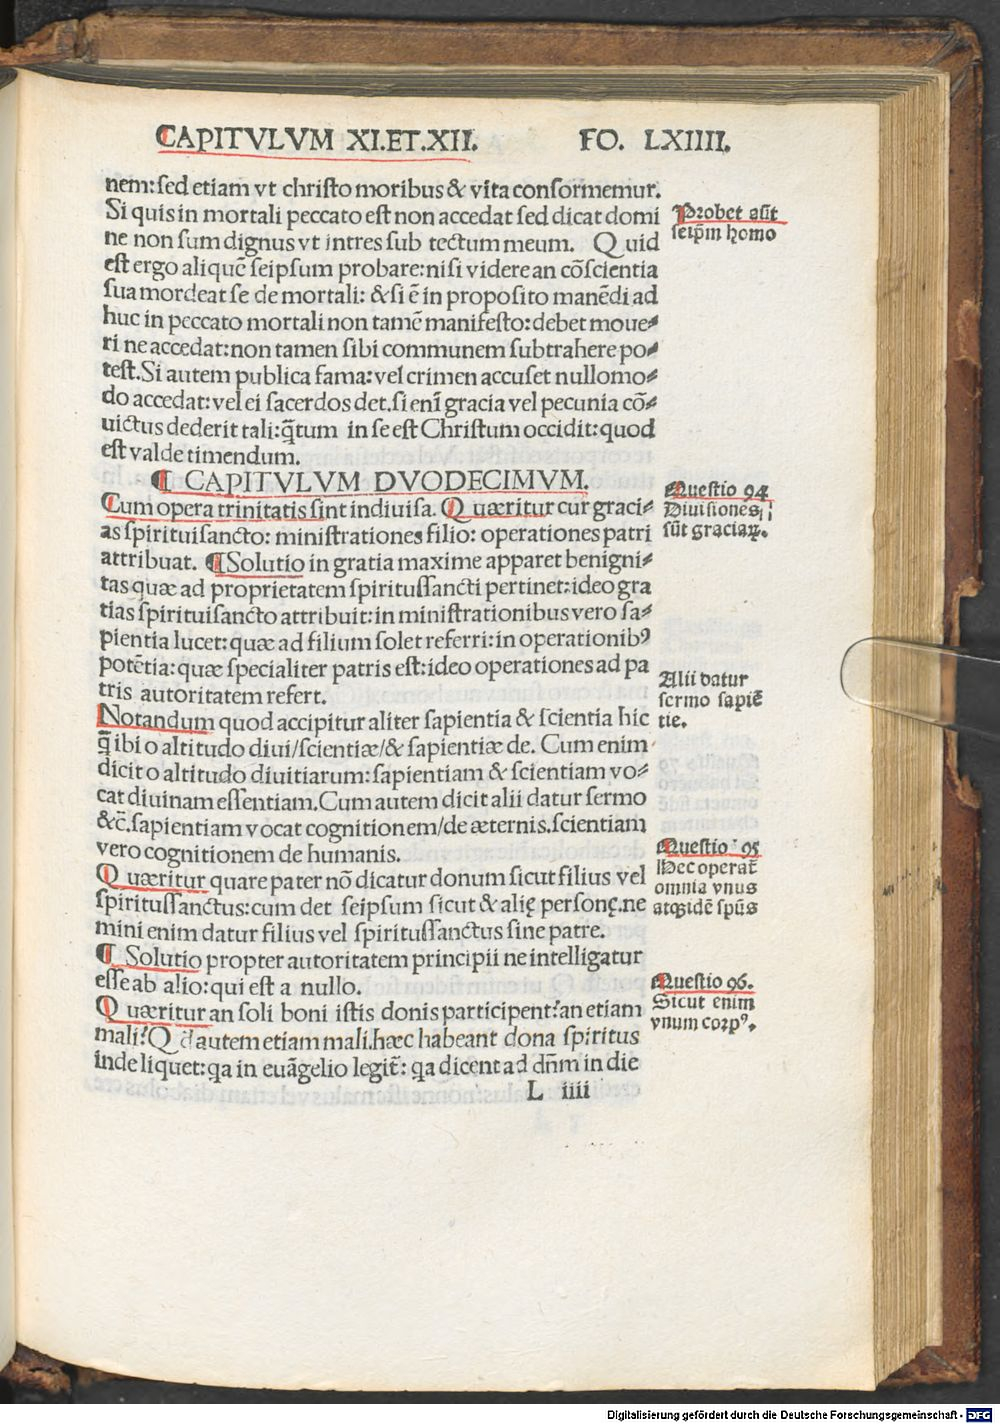 CAPITVLVM XI.ET.XII. FO. LXIIII.
nem:sed etiam vt christo moribus & vita conformemur.
Si quis in mortali peccato est non accedat sed dicat domi
ne non sum dignus vt intres sub tectum meum. Quid
est ergo aliquē seipsum probare:nisi videre an cōscientia
sua mordeat se de mortali: & si ē in proposito manēdi ad
huc in peccato mortali non tamē manifesto:debet moue⸗
ri ne accedat:non tamen sibi communem subtrahere po⸗
test.Si autem publica fama:vel crimen accuset nullomo⸗
do accedat:vel ei sacerdos det.si enī gracia vel pecunia cō⸗
uictus dederit tali:q̄tum in se est Christum occidit:quod
est valde timendum.
Probet aūt
seip̄m homo
¶ CAPITVLVM DVODECIMVM.
Cum opera trinitatis sint indiuisa. Quæritur cur graci⸗
as spirituisancto: ministrationes filio: operationes patri
attribuat. ¶Solutio in gratia maxime apparet benigni⸗
tas quæ ad proprietatem spiritussancti pertinet:ideo gra
tias spirituisancto attribuit:in ministrationibus vero sa⸗
pientia lucet:quæ ad filium solet referri:in operationibꝰ
potētia:quæ specialiter patris est:ideo operationes ad pa
tris autoritatem refert.
Questio 94
Diuisiones
sūt graciaꝝ.
Notandum quod accipitur aliter sapientia & scientia hic
q̄ ibi o altitudo diui/scientiæ/& sapientiæ de. Cum enim
dicit o altitudo diuitiarum:sapientiam & scientiam vo⸗
cat diuinam essentiam.Cum autem dicit alii datur sermo
&c̄.sapientiam vocat cognitionem/de æternis.scientiam
vero cognitionem de humanis.
Alii datur
sermo sapiē
tie.
Quæritur quare pater nō dicatur donum sicut filius vel
spiritussanctus:cum det seipsum sicut & alię personę.ne
mini enim datur filius vel spiritussanctus sine patre.
¶ Solutio propter autoritatem principii ne intelligatur
esse ab alio:qui est a nullo.
Questio 95
Hec operat̄
omnia vnus
atqꝫ idē sp̄us
Quæritur an soli boni istis donis participent?an etiam
mali?Qd autem etiam mali.hæc habeant dona spiritus
inde liquet:qa in euāgelio legit̄: qa dicent ad dn̄m in die
Questio 96.
Sicut enim
vnum corpꝰ.
L iiii
Digitalisierung gefördert durch die Deutsche Forschungsgemeinschaft - DFG